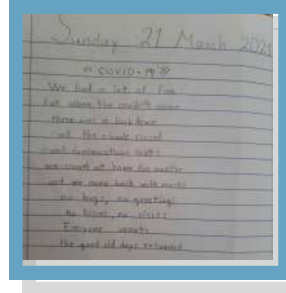 Sunday 21 March 2021
" COVID-19 "
We had a lot of fun
but when the covid19 came
there was a lockdown
all the schools closed
and
we stayed at home for months
and we came back with masks
no hugs, no greetings
no kisses, no visits
Everyone wants
the good old days returned